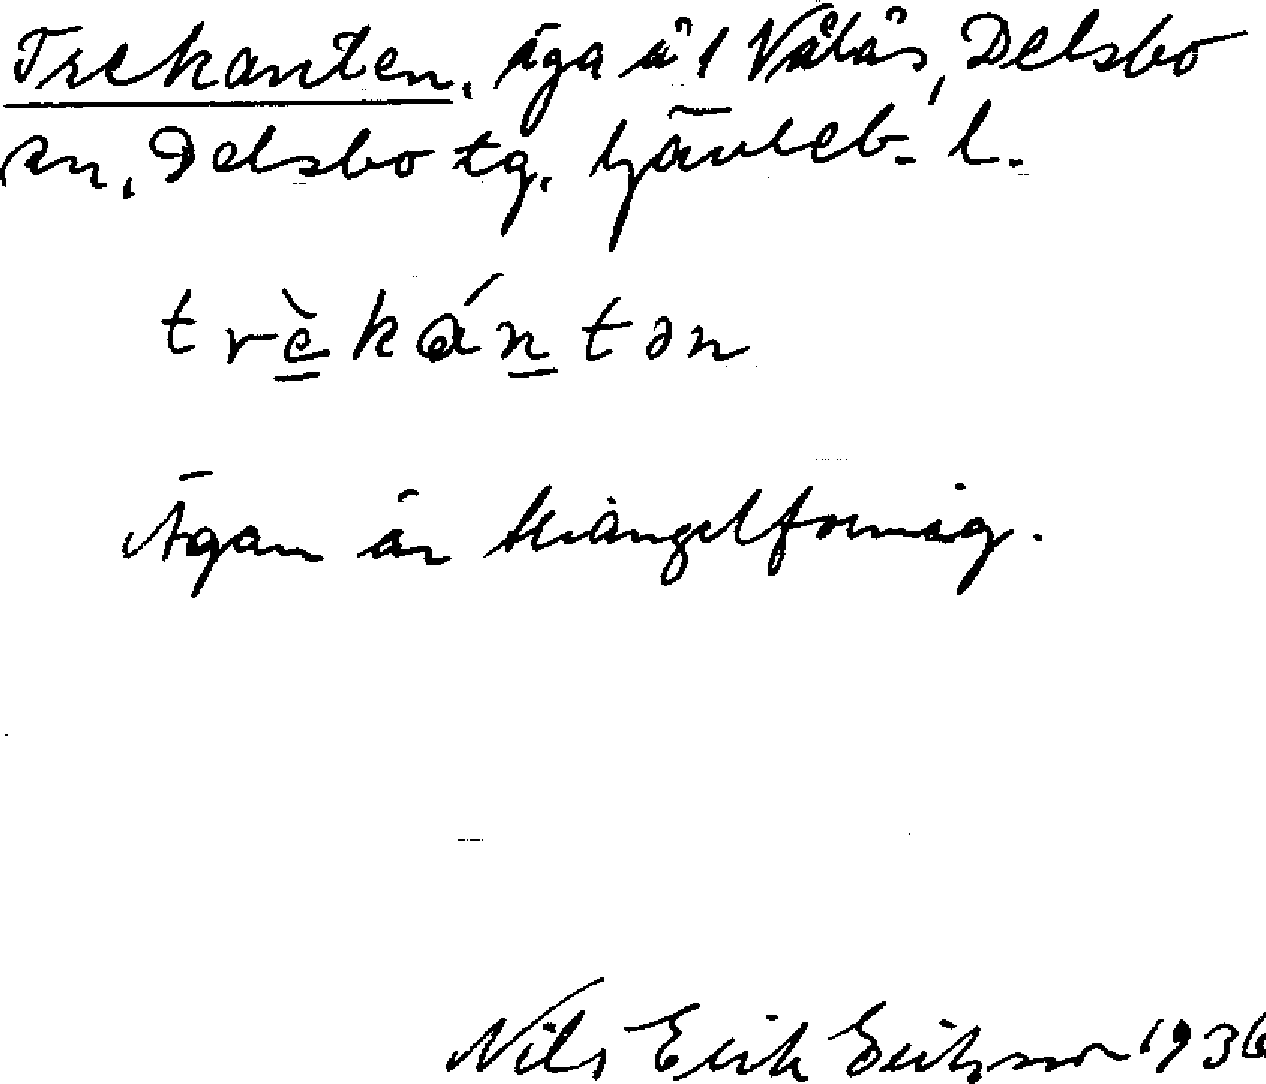 Trekanten, äga å 1 Våtås, Delsbo
sn, Delsbo tg. Gävleb. l.
trèkántən
Ägan är triangelformig.
Nils Erik Eriksson 1936